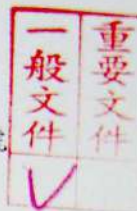 重要文件
一般文件
V